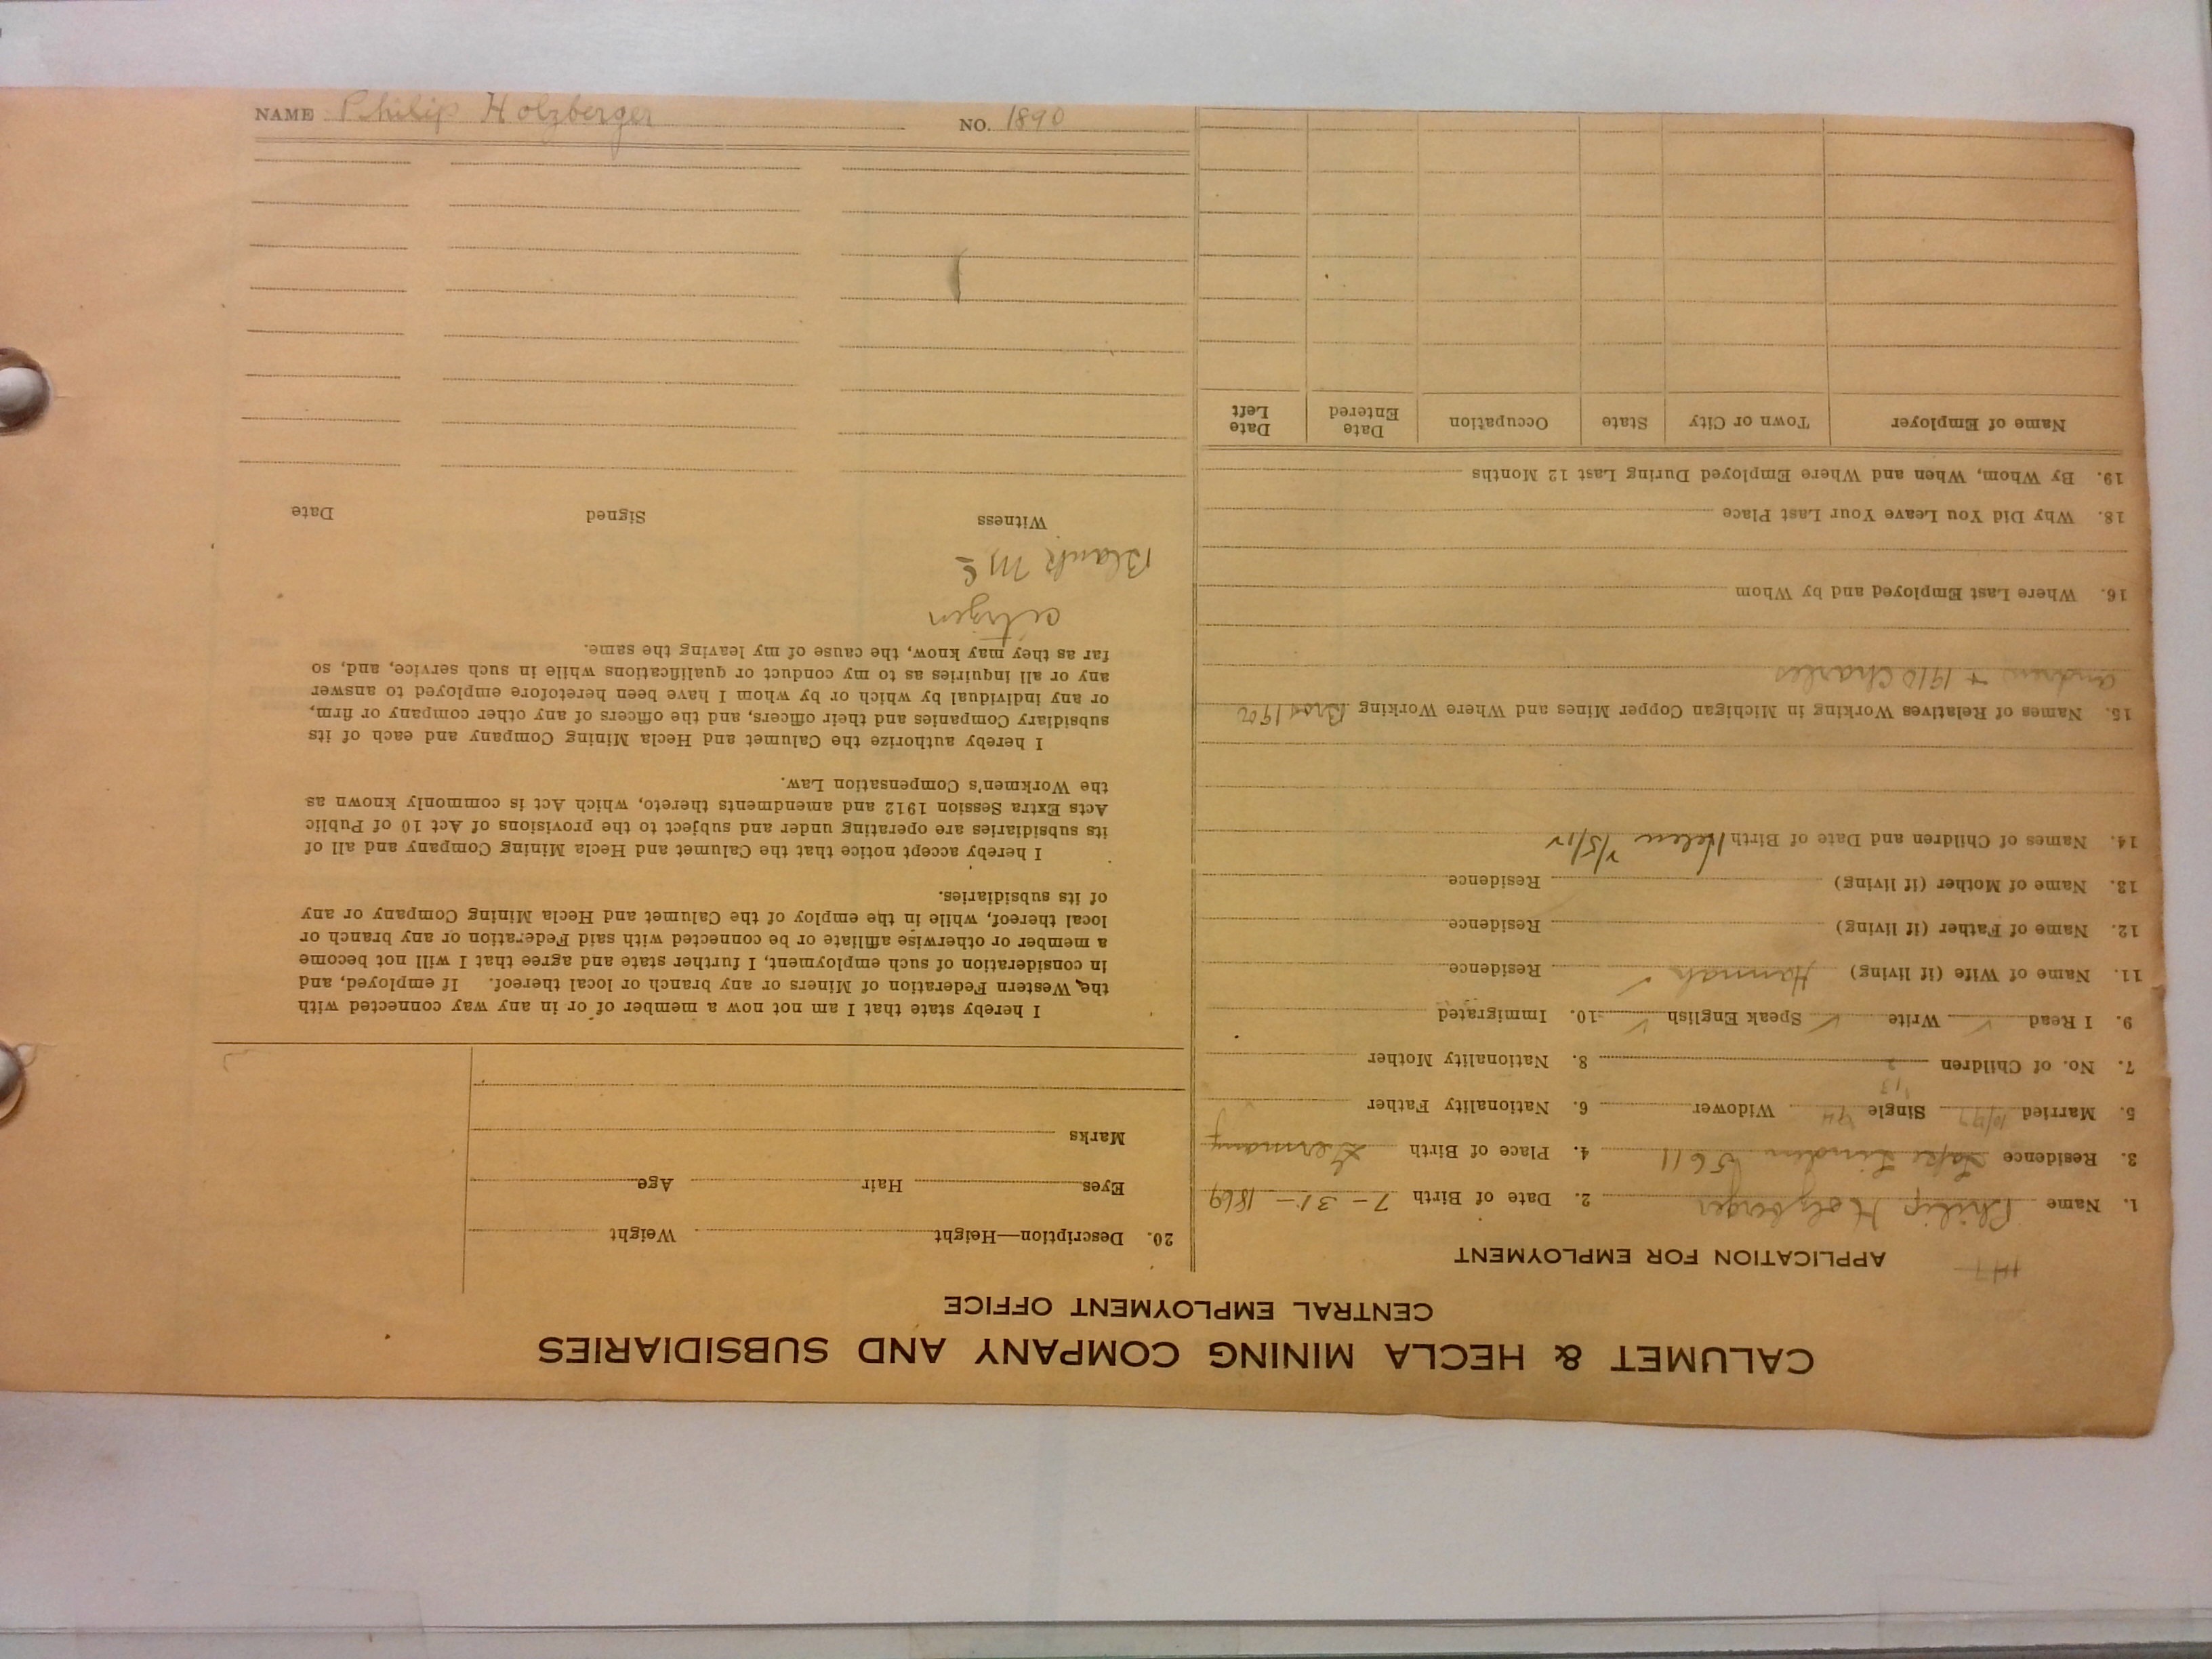 CALUMET & HECLA MINING COMPANY AND SUBSIDIARIES
CENTRAL EMPLOYMENT OFFICE
APPLICATION FOR EMPLOYMENT
1. Name Philip Holzberger 2. Date of Birth 7-31-1869
3. Residence Lake Linden 5611 4. Place of Birth Germany
5. Married Single Widower 6. Nationality Father
7. No. of Children 8. Nationality Mother
9. I Read ✓ Write ✓ Speak English ✓ 10. Immigrated
11. Name of Wife (if living) Hannah ✓ Residence
12. Name of Father (if living) Residence
13. Name of Mother (if living) Residence
14. Names of Children and Date of Birth Helen
15. Names of Relatives Working in Michigan Copper Mines and Where Working Bros 1900
Andrew + 1910 Charles
16. Where Last Employed and by Whom
18. Why Did You Leave Your Last Place
19. By Whom, When and Where Employed During Last 12 Months
Name of Employer Town or City State Occupation Date Entered Date Left
20. Description—Height Weight
Eyes Hair Age
Marks
I hereby state that I am not now a member of or in any way connected with
the Western Federation of Miners or any branch or local thereof. If employed, and
in consideration of such employment, I further state and agree that I will not become
a member or otherwise affiliate or be connected with said Federation or any branch or
local thereof, while in the employ of the Calumet and Hecla Mining Company or any
of its subsidiaries.
I hereby accept notice that the Calumet and Hecla Mining Company and all of
its subsidiaries are operating under and subject to the provisions of Act 10 of Public
Acts Extra Session 1912 and amendments thereto, which Act is commonly known as
the Workmen's Compensation Law.
I hereby authorize the Calumet and Hecla Mining Company and each of its
subsidiary Companies and their officers, and the officers of any other company or firm,
or any individual by which or by whom I have been heretofore employed to answer
any or all inquiries as to my conduct or qualifications while in such service, and, so
far as they may know, the cause of my leaving the same.
citizen
Blank
Witness Signed Date
NAME Philip Holzberger NO. 1890